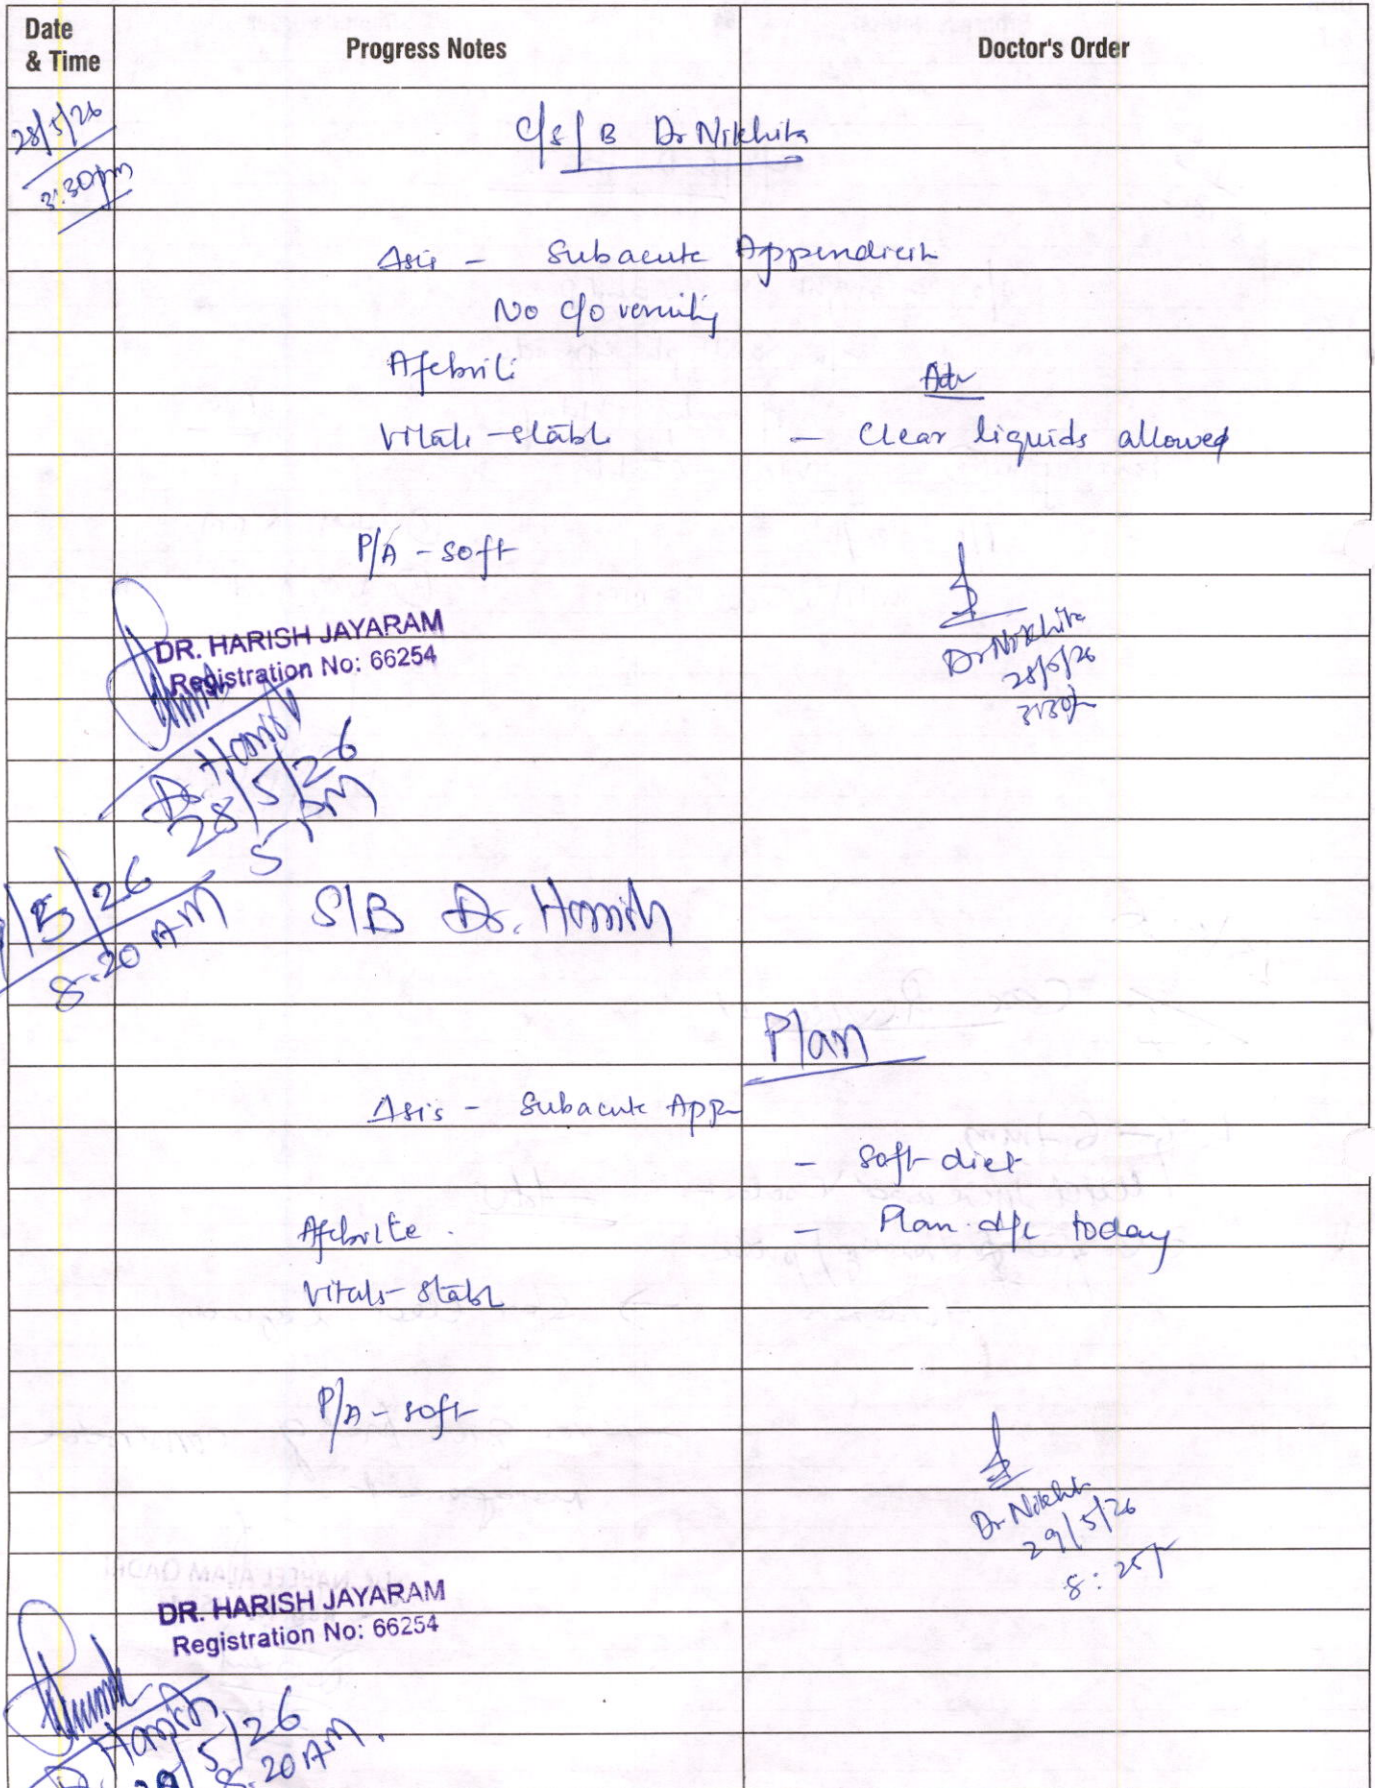 Date & Time
Progress Notes
Doctor's Order
28/5/26
3:30pm
C/S/B Dr Nikhita
Δsis - Subacute Appendicitis
No c/o vomiting
Afebrile
Adv
Vitals - stable
- Clear liquids allowed
P/A - soft
Dr Nikhita
28/5/26
3:30p
DR. HARISH JAYARAM
Registration No: 66254
Dr. Harish
28/5/26
5 PM
/5/26
8.20 AM
S/B Dr. Harish
Plan
Δsis - Subacute App
- Soft diet
Afebrile.
- Plan d/c today
Vitals - Stable
P/A - soft
Dr Nikhita
29/5/26
8:25
DR. HARISH JAYARAM
Registration No: 66254
Dr. Harish
29/5/26
8.20 AM.